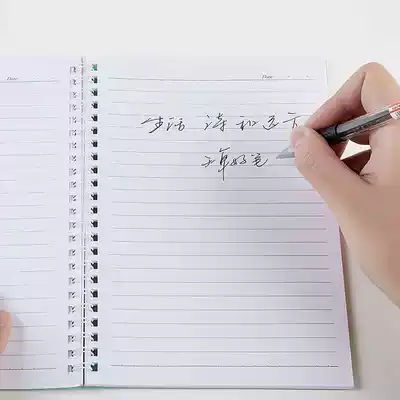 Date
Date
生活 诗和远方
好